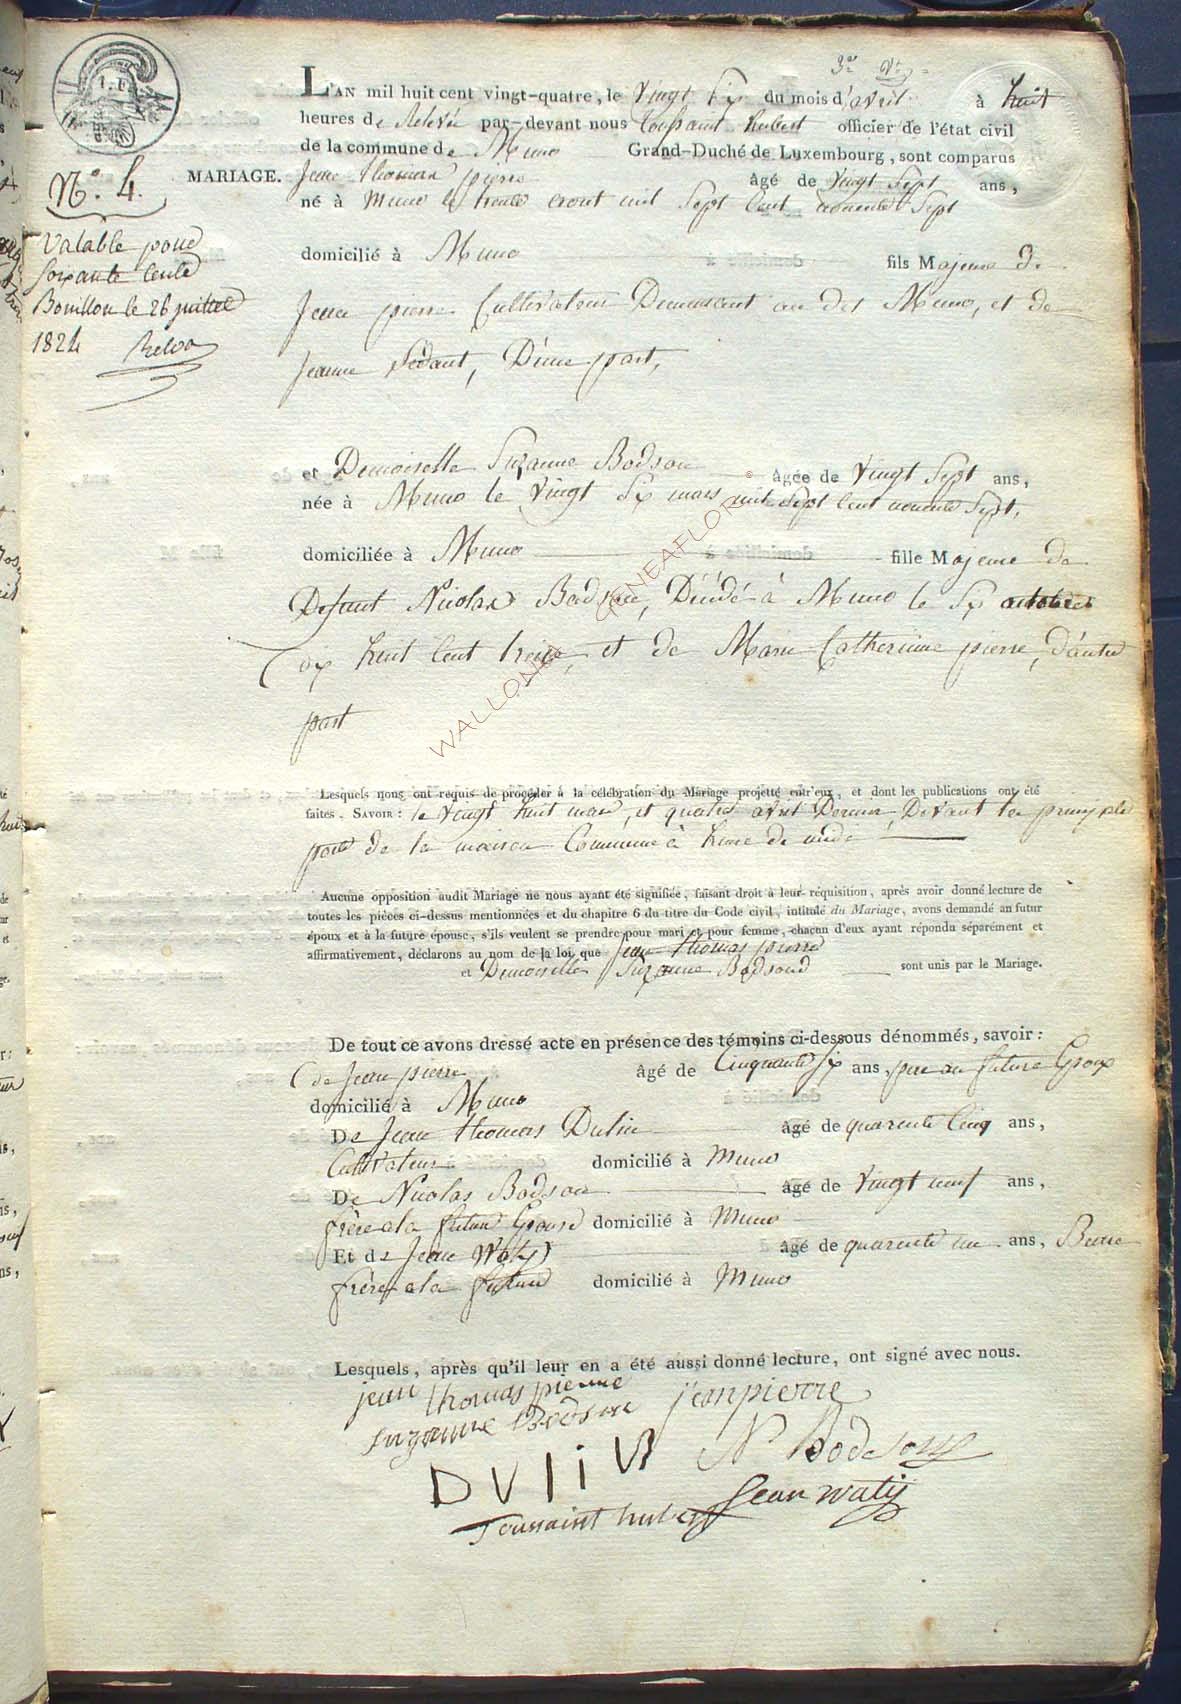 3e Vo
1. F.
L'AN mil huit cent vingt-quatre, le vingt six du mois d'avril à huit
heures de Relevée par-devant nous toussaint hubert officier de l'état civil
de la commune de Muno Grand-Duché de Luxembourg, sont comparus
No. 4.
MARIAGE. Jean thomas pierre âgé de vingt sept ans,
né à Muno le trente aout mil sept cent nonente sept
valable pour
soixante cents
Bouillon le 26 juillet
1824
domicilié à Muno fils Majeur de
Jean pierre Cultivateur Demeurant au dit Muno, et de
jeanne Sedant, D'une part,
et Demoiselle Suzanne Bodson âgée de vingt sept ans,
née à Muno le vingt six mars mil sept cent nonente sept,
domiciliée à Muno fille Majeure de
Defunt Nicolas Bodson, Décédé à Muno le six octobre
dix huit cent treize, et de Marie Catherinne pierre, d'autre
part
© WALLONIA GENEAFLOR
Lesquels nous ont requis de procéder à la célébration du Mariage projetté entr'eux, et dont les publications ont été
faites. SAVOIR : le vingt huit mars, et quatre avril Dernier Devant la principale
porte de la maison Commune à heure de midi
Aucune opposition audit Mariage ne nous ayant été signifiée, faisant droit à leur réquisition, après avoir donné lecture de
toutes les pièces ci-dessus mentionnées et du chapitre 6 du titre du Code civil, intitulé du Mariage, avons demandé au futur
époux et à la future épouse, s'ils veulent se prendre pour mari et pour femme, chacun d'eux ayant répondu séparément et
affirmativement, déclarons au nom de la loi que Jean thomas pierre
et Demoiselle Suzanne Bodson sont unis par le Mariage.
De tout ce avons dressé acte en présence des témoins ci-dessous dénommés, savoir :
de Jean pierre âgé de Cinquante six ans, pere au future Epoux
domicilié à Muno
De Jean thomas Dulin âgé de quarente Cinq ans,
Cultivateur domicilié à Muno
De Nicolas Bodson âgé de vingt neuf ans,
frère a la future Epouse domicilié à Muno
Et de Jean Watÿ âgé de quarente un ans, Beau
frère a la future domicilié à Muno
Lesquels, après qu'il leur en a été aussi donné lecture, ont signé avec nous.
jean thomas pierre jean pierre
suzanne Bodson N Bodson
DULIN Jean watÿ
Toussaint hubert